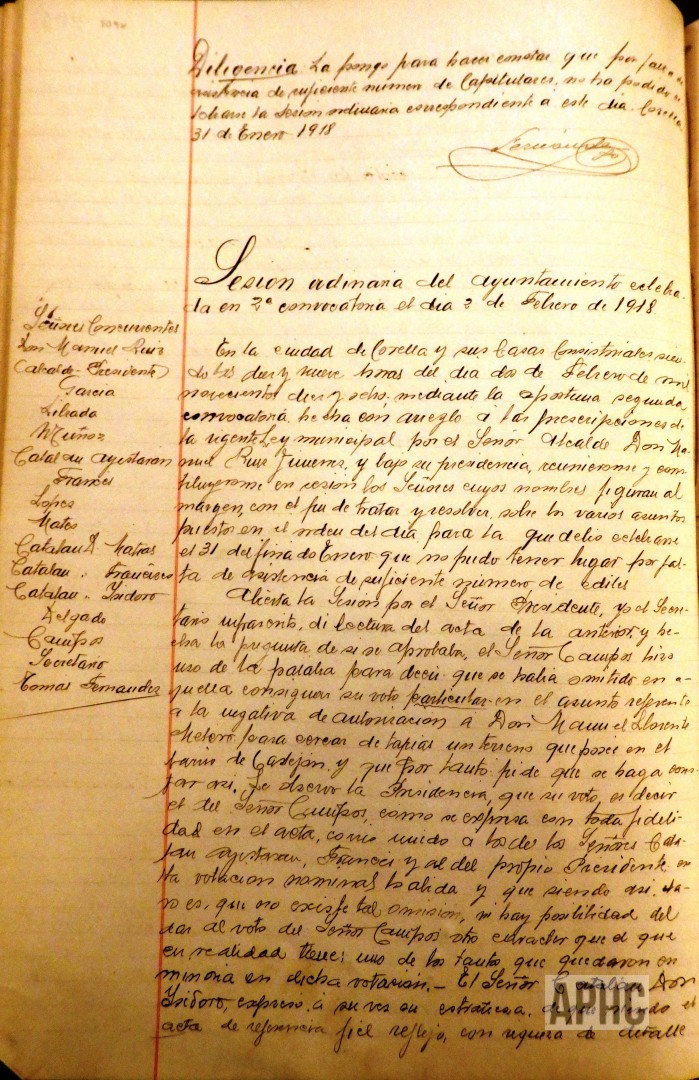 Diligencia: La pongo para hacer constar que por falta de
asistencia de suficiente número de Capitulares, no ha podido ce
lebrarse la sesion ordinaria correspondiente a este dia. Corella
31 de Enero 1918
Sesion ordinaria del Ayuntamiento celebra-
da en 2ª convocatoria el dia 2 de Febrero de 1918
Señores Concurrentes
Don Manuel Ruiz
Alcalde-Presidente
Garcia
Librada
Muñoz
Catalan Ayestaran
Frances
Lopez
Mateo
Catalan D. Matias
Catalan " Francisco
Catalan " Isidoro
Delgado
Campos
Secretario
Tomas Fernandez
En la ciudad de Corella y sus Casas Consistoriales sien-
do las diez y nueve horas del dia dos de Febrero de mil
novecientos diez y ocho, mediante la oportuna segunda
convocatoria, hecha con arreglo á las prescripciones de
la vigente Ley municipal por el Señor Alcalde Don Ma-
nuel Ruiz Jimenez, y bajo su presidencia, reunieronse y cons-
tituyeronse en sesion los Señores cuyos nombres figuran al
margen, con el fin de tratar y resolver, sobre los varios asuntos
puestos en el orden del dia para la que debió celebrarse
el 31 del finado Enero que no pudo tener lugar por fal-
ta de asistencia de suficiente número de ediles
Abierta la Sesion por el Señor Presidente, yo el Secre-
tario infrascrito, di lectura del acta de la anterior y he-
cha la pregunta de si se aprobaba, el Señor Campos hizo
uso de la palabra para decir que se habia omitido en a-
quella consignar su voto particular en el asunto referente
a la negativa de autorizacion a Don Manuel Llorente
para cercar de tapias un terreno que posee en el
barrio de Castejón, y que por tanto pide que se haga cons-
tar asi. Le observó la Presidencia, que su voto, es decir
el del Señor Campos, como se expresa con toda fideli-
dad en el acta, corrió unido a los de los Señores Cata-
lan Ayestaran, Frances y al del propio Presidente en
la votacion nominal habida y que siendo asi, cla-
ro es, que no existe tal omisión, ni hay posibilidad de
dar al voto del Señor Campos otro caracter que el que
en realidad tiene; uno de los tantos que quedaron en
minoria en dicha votación. — El Señor Catalán Don
Isidoro, expresó á su vez su estrañeza, siendo el
acta de referencia fiel reflejo, con riqueza de detalle
APHC